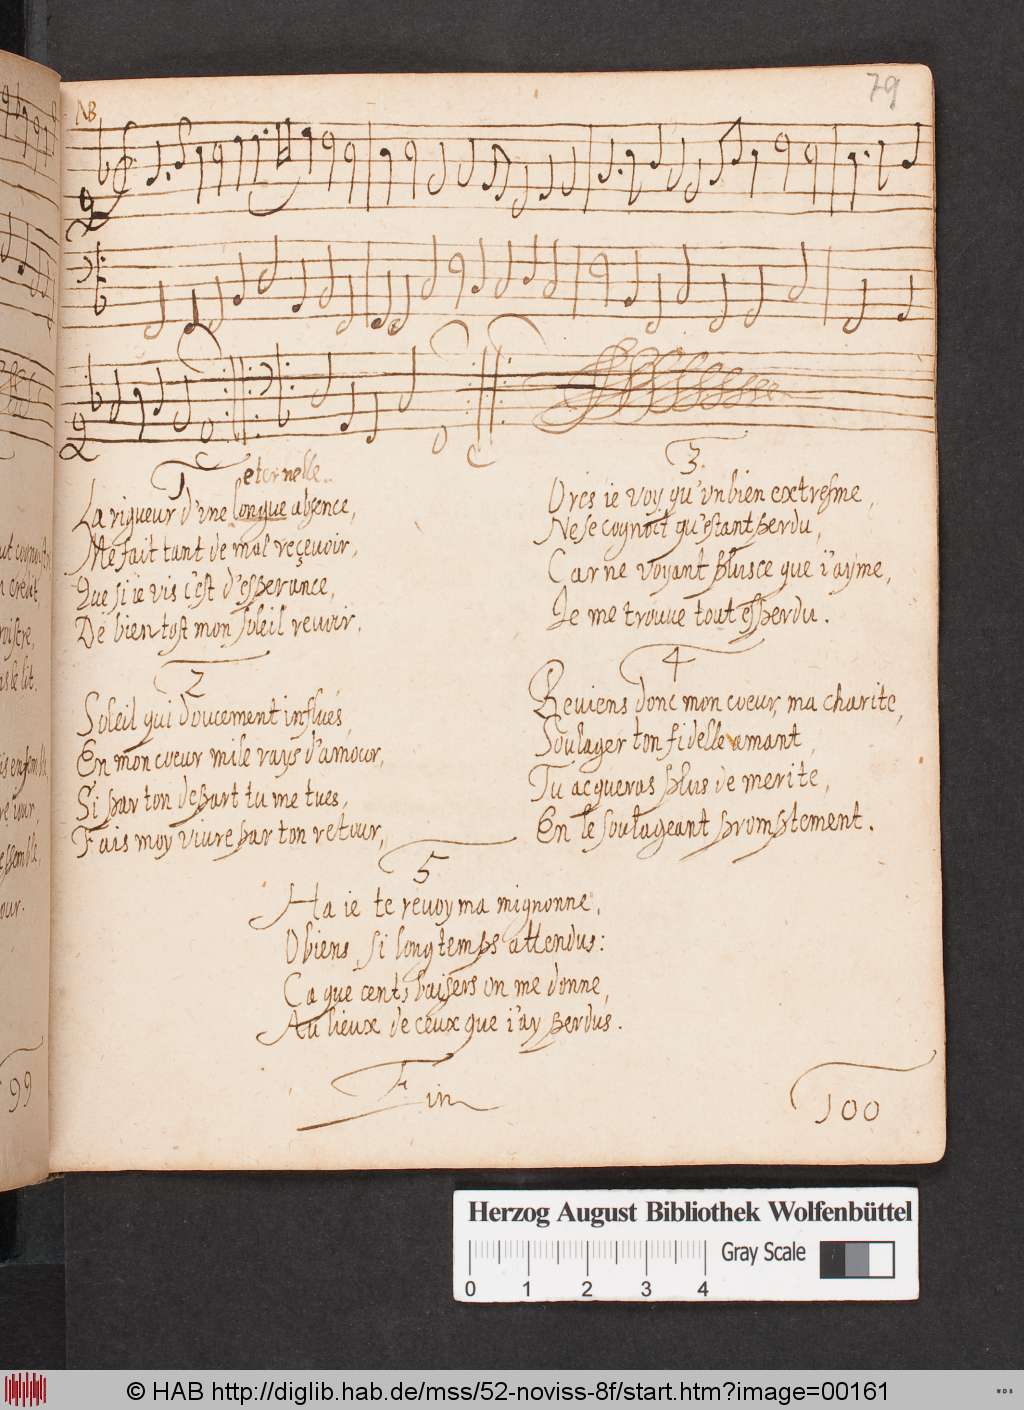 79
NB
1
eternelle..
La rigueur d'vne longue absence,
Me fait tant de mal reçeuoir,
Que si ie vis c'est d'esperance,
De bien tost mon soleil reuoir.
2
Soleil qui doucement influes
En mon coeur mile rays d'amour,
Si par ton depart tu me tues,
Fais moy viure par ton retour,
3.
Ores ie voy qu'vn bien extresme,
Ne se cognoit qu'estant perdu,
Car ne voyant plus ce que i'ayme,
Je me trouue tout esperdu.
4
Reuiens donc mon coeur, ma charite,
Soulager ton fidelle amant,
Tu acqueras plus de merite,
En le soulageant promptement.
5
Ha ie te reuoy ma mignonne,
O biens, si long temps attendus:
Ca que cents baisers on me donne,
Au lieux de ceux que i'ay perdus.
Fin
100
99
Herzog August Bibliothek Wolfenbüttel
Gray Scale
0 1 2 3 4
© HAB http://diglib.hab.de/mss/52-noviss-8f/start.htm?image=00161